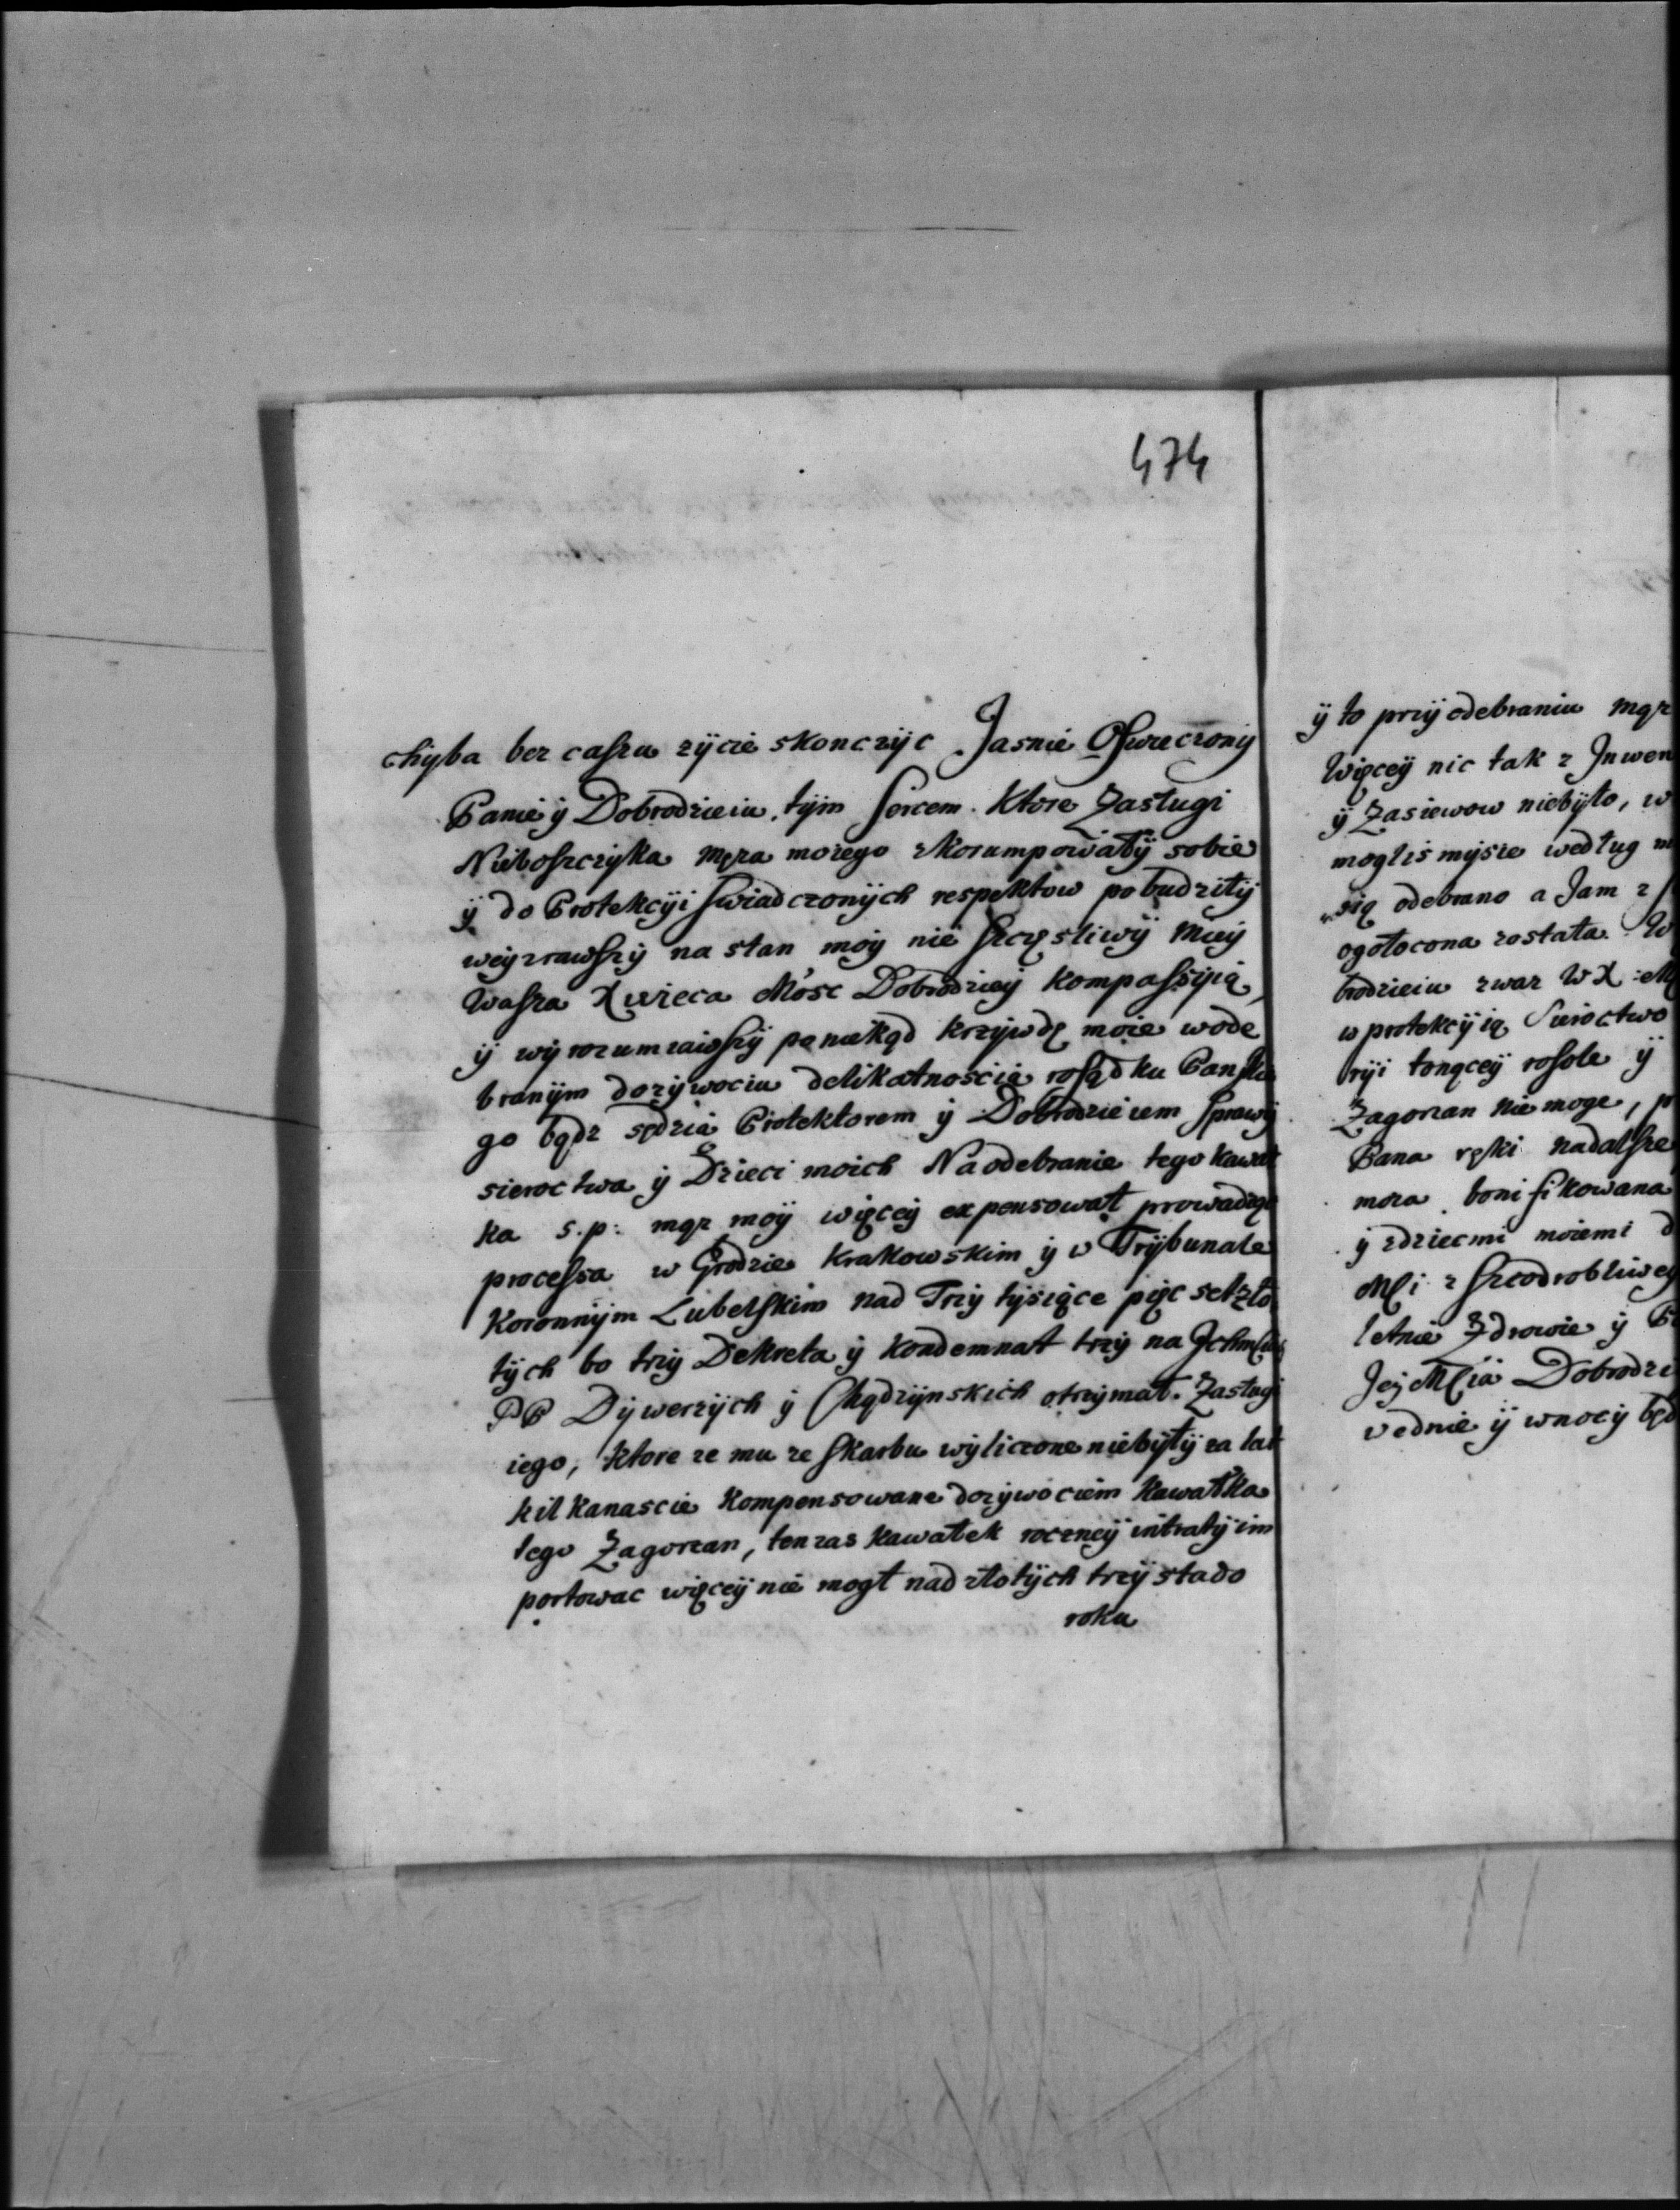 474
chyba bez caszu zÿcie skonczÿc Jasnie Oswieczonÿ
Panie ÿ Dobrodzieiu, tÿm Sercem. Ktore Zasługi
Nieboszczÿka męza moiego skorumpowałÿ sobie
ÿ do Protekcÿi swiadczonÿch respektow pobudziłÿ
weÿzrawszÿ na stan moÿ nie szczęsliwÿ mieÿ
Wasza Xwieca Mosc Dobrodzieÿ kompassÿią,
ÿ wÿrozumiawszÿ poniekąd krzÿwdę moie wode
branÿm dozÿwociu delikatnoscią rosądku Panskie
go bądz sędzią Protektorem ÿ Dobrodzieiem sprawÿ
sieroctwa ÿ Dzieci moich Na odebranie tego kawał
ka s.p: mąz moÿ więceÿ expensował prowadząc
processa w Grodzie Krakowskim ÿ w Trÿbunale
Koronnÿm Lubelskim nad Trzÿ tÿsiące pięc setzło
tÿch bo trzÿ Dekreta ÿ kondemnat trzÿ na
PP Dÿwerzÿch ÿ Chądzÿnskich otrzÿmał. Zasługi
iego, ktore ze mu ze skarbu wÿliczone niebÿłÿ za lat
kilkanascie kompensowane dozÿwociem kawałka
tego Zagorzan, ten zas kawałek roczneÿ intratÿ im
portowac więceÿ nie mogł nad złotÿch trzÿ sta do
roku
ÿ to przÿ odebraniu mąz
Więceÿ nic tak z Jnwen
ÿ Zasiewow niebÿło, w
moglismÿsie według
się odebrano a Jam z
ogołocona została. W
brodzieiu zwaz WX:
w protekcÿią Sieroctwo
rÿi tonąceÿ rosole ÿ
Zagorzan nie moge,
Pana ręki nadalsze
moza bonifikowana
ÿ zdziecmi moiemi d
Msci z szczodrobliweÿ
letnie Zdrowie ÿ
Jeÿ Mscia Dobrodzi
vednie ÿ wnocÿ będ